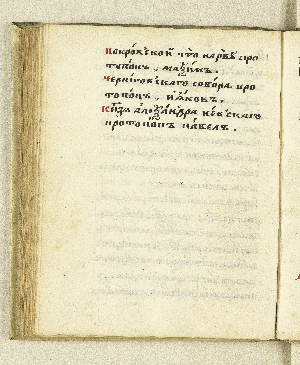 Покровской что на рвѣ про
топопъ, маѯимъ.
Черниговскаго собора про
топопъ, иꙗковъ.
Кнѕѧ алеѯандра невскаго
протопопъ павелъ.